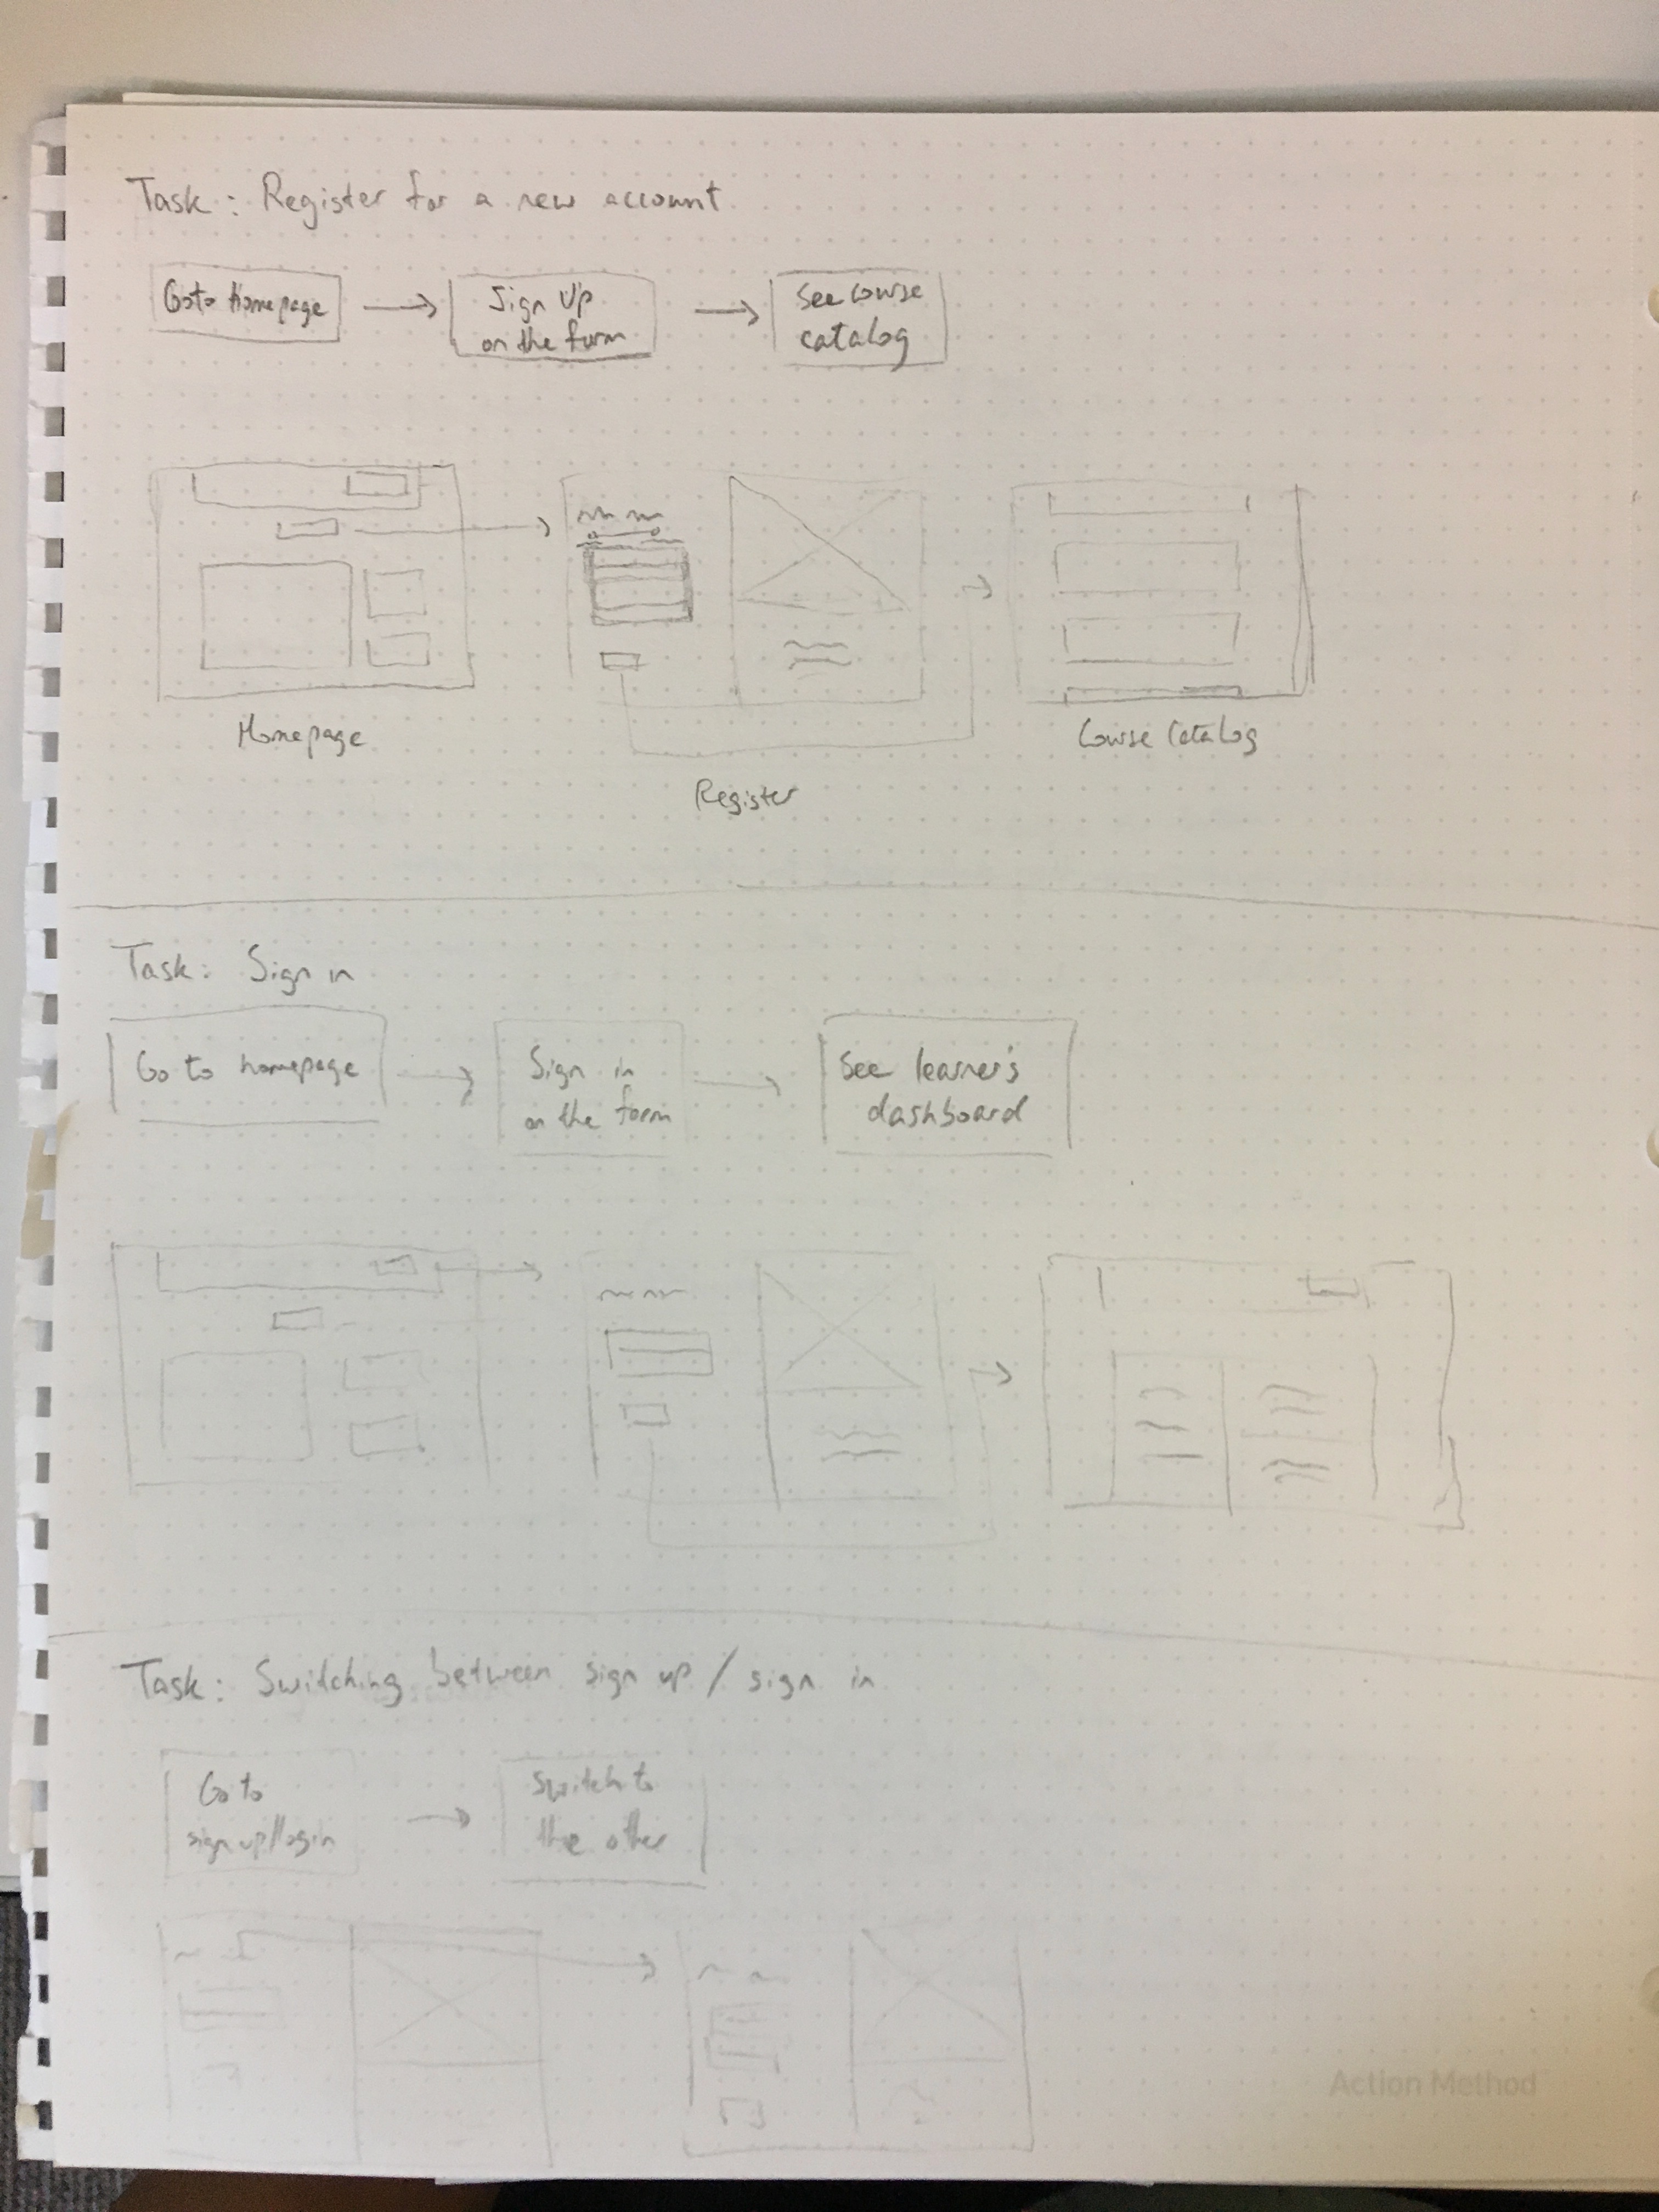 Task: Register for a new account
Goto homepage
Sign Up
on the form
See course
catalog
Homepage
Register
Course Catalog
Task: Sign in
Go to homepage
Sign in
on the form
See learner's
dashboard
Task: Switching between sign up / sign in
Go to
sign up/login
Switch to
the other
Action Method